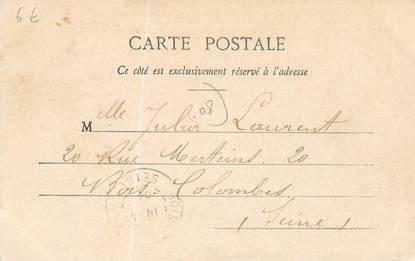 6 €
CARTE POSTALE
Ce côté est exclusivement réservé à l'adresse
80
Melle Laurent
20 Rue Mertens. 20
Bois-Colombes
(Seine)